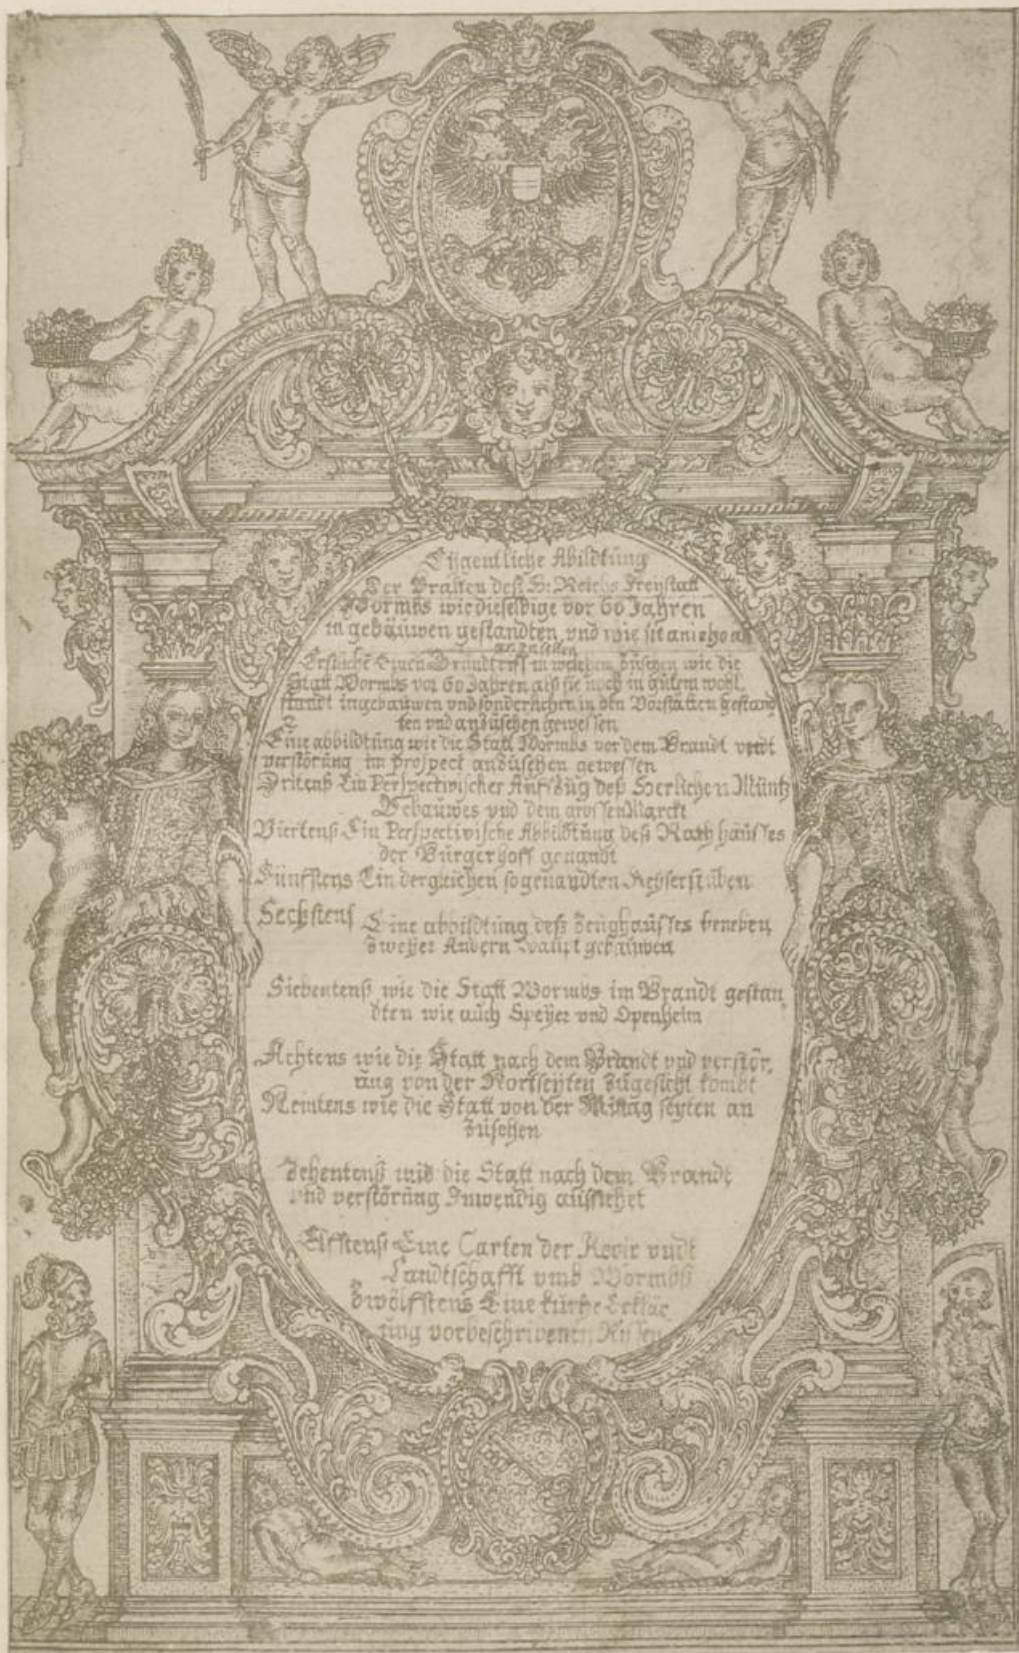 Eijgentliche Abildtung
Der Uralten deß H: Reichs Freystatt
Wormbs wie dieselbige vor 60 Jahren
in gebäuwen gestandten vnd wie sie anietzo an
zusehen
Erstliche Einen Grundtriss in welchem zusehen wie die
Statt Wormbs vor 60 Jahren alß sie noch in gutem wohl
standt ingebauwen vnd sonderlichen in den Vorstatten gestand
ten vnd anzusehen gewessen
2
Eine abbildtung wie die Statt Wormbs vor dem Brandt vndt
verstörung im prospect anzusehen gewessen
Dritenß Ein Perspectivischer Auffzug deß Herlichen Müntz
Gebauwes vnd dem grossen Marckt
Viertenß Ein Perspectivische Abbildtung deß Rathhäusses
der Bürgerhoff genandt
Fünfftens Ein dergleichen sogenandten Keyserstuben
Sechstens Eine abbildtung deß Zeughausses beneben
Zweyer Andern gebäuwen
Siebentenß wie die Statt Wormbs im Brandt gestan
dten wie auch Speyer vnd Openheim
Achtens wie die Statt nach dem Brandt vnd verstör,
ung von der Nortseyten Zugesicht kombt
Neintens wie die Statt von der Mittag seyten an
Zusehen
Zehentenß wie die Statt nach dem Brandt
vnd verstörung Inwendig aussiehet
Elfftenß Eine Carten der Revir vndt
Landtschafft vmb Wormbß
Zwölfftens Eine kurtze Erklär
ung vorbeschriwenen Rissen